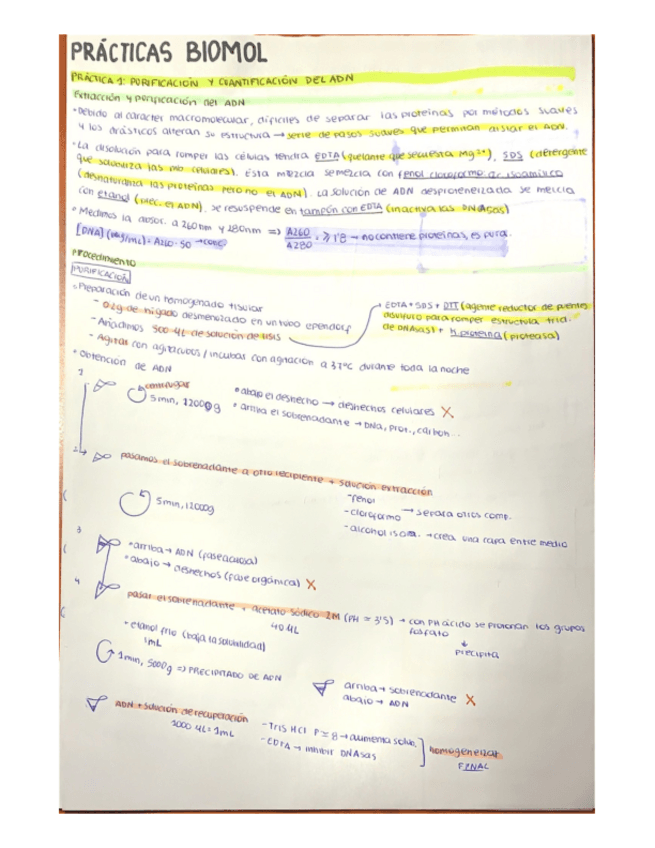 PRÁCTICAS BIOMOL
PRÁCTICA 1: PURIFICACIÓN Y CUANTIFICACIÓN DEL ADN
Extracción y purificación del ADN
• Debido al carácter macromolecular, difíciles de separar las proteínas por métodos suaves
y los drásticos alteran su estructura → serie de pasos suaves que permitan aislar el ADN.
• La disolución para romper las células tendrá EDTA (quelante que secuestra Mg²⁺), SDS (detergente
que solubiliza las mb celulares). Esta mezcla se mezcla con fenol cloroformo ac. isoamílico
(desnaturaliza las proteínas pero no el ADN). La solución de ADN desproteneizada se mezcla
con etanol (prec. el ADN), se resuspende en tampón con EDTA (inactiva las DNAsas)
• Medimos la absor. a 260nm y 280nm => A260/A280 ≥ 1'8 → no contiene proteínas, es pura.
[DNA] (µg/mL) = A260 · 50 → conc.
Procedimiento
PURIFICACIÓN
• Preparación de un homogenado tisular
- 0,2g de hígado desmenuzado en un tubo ependorf
- Añadimos 500 µL de solución de lisis
EDTA + SDS + DTT (agente reductor de puentes
disulfuro para romper estructura trid.
de DNAsas) + K proteína (proteasa)
- Agitar con agitavous / incubar con agitación a 37ºC durante toda la noche
• Obtención de ADN
1
centrifugar
5 min, 12000g
• abajo el deshecho → deshechos celulares X
• arriba el sobrenadante → DNA, prot., carboh...
2
pasamos el sobrenadante a otro recipiente + solución extracción
5 min, 12000g
- fenol
- cloroformo → separa otros comp.
- alcohol isoam. → crea una capa entre medio
3
• arriba → ADN (fase acuosa)
• abajo → deshechos (fase orgánica) X
4
pasar el sobrenadante + acetato sódico 2M (PH = 3'5) → con PH ácido se protonan los grupos
fosfato
40 µL
↓
precipita
• etanol frío (baja la solubilidad)
1mL
1 min, 5000g => PRECIPITADO DE ADN
arriba → sobrenadante X
abajo → ADN
ADN + solución de recuperación
1000 µL = 1mL
- Tris HCl P = 8 → aumenta solub.
- EDTA → inhibir DNAsas
homogeneizar
FINAL